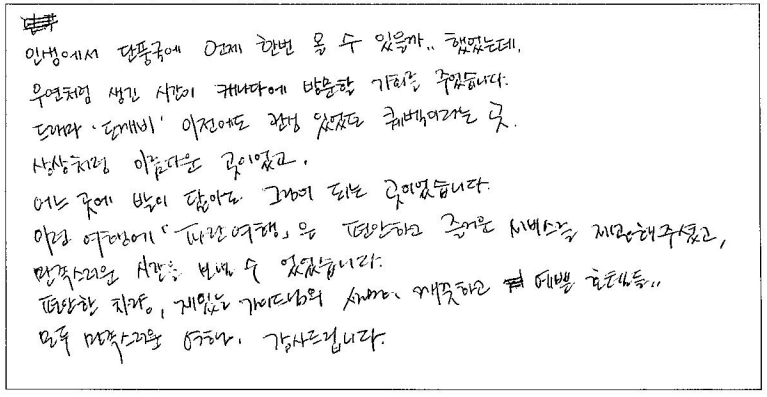 인생에서 단풍국에 언제 한번 올 수 있을까.. 했었는데,
우연처럼 생긴 시간이 캐나다에 방문할 기회를 주었습니다.
드라마 '도깨비' 이전에도 관심 있었던 퀘벡이라는 곳.
상상처럼 아름다운 곳이었고,
어느 곳에 발이 닿아도 그림이 되는 곳이었습니다.
이런 여행에 「파란여행」은 편안하고 즐거운 서비스를 제공해주셨고,
만족스러운 시간을 보낼 수 있었습니다.
편안한 차량, 재밌는 가이드님의 깨끗하고 예쁜 호텔들..
모두 만족스러운 여행. 감사드립니다.